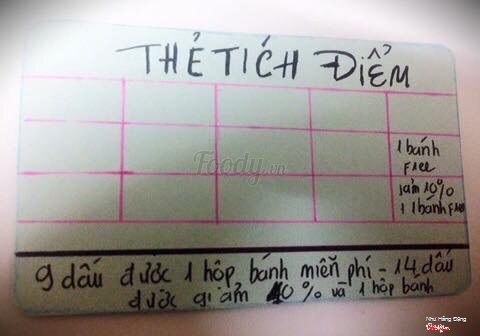 THẺ TÍCH ĐIỂM
Foody.vn
1 bánh
Free
jảm 10%
1 1 bánh Free
9 dấu được 1 hộp bánh miễn phí - 14 dấu
được giảm 10% và 1 hộp bánh
Như Hồng Đặng
Foody.vn